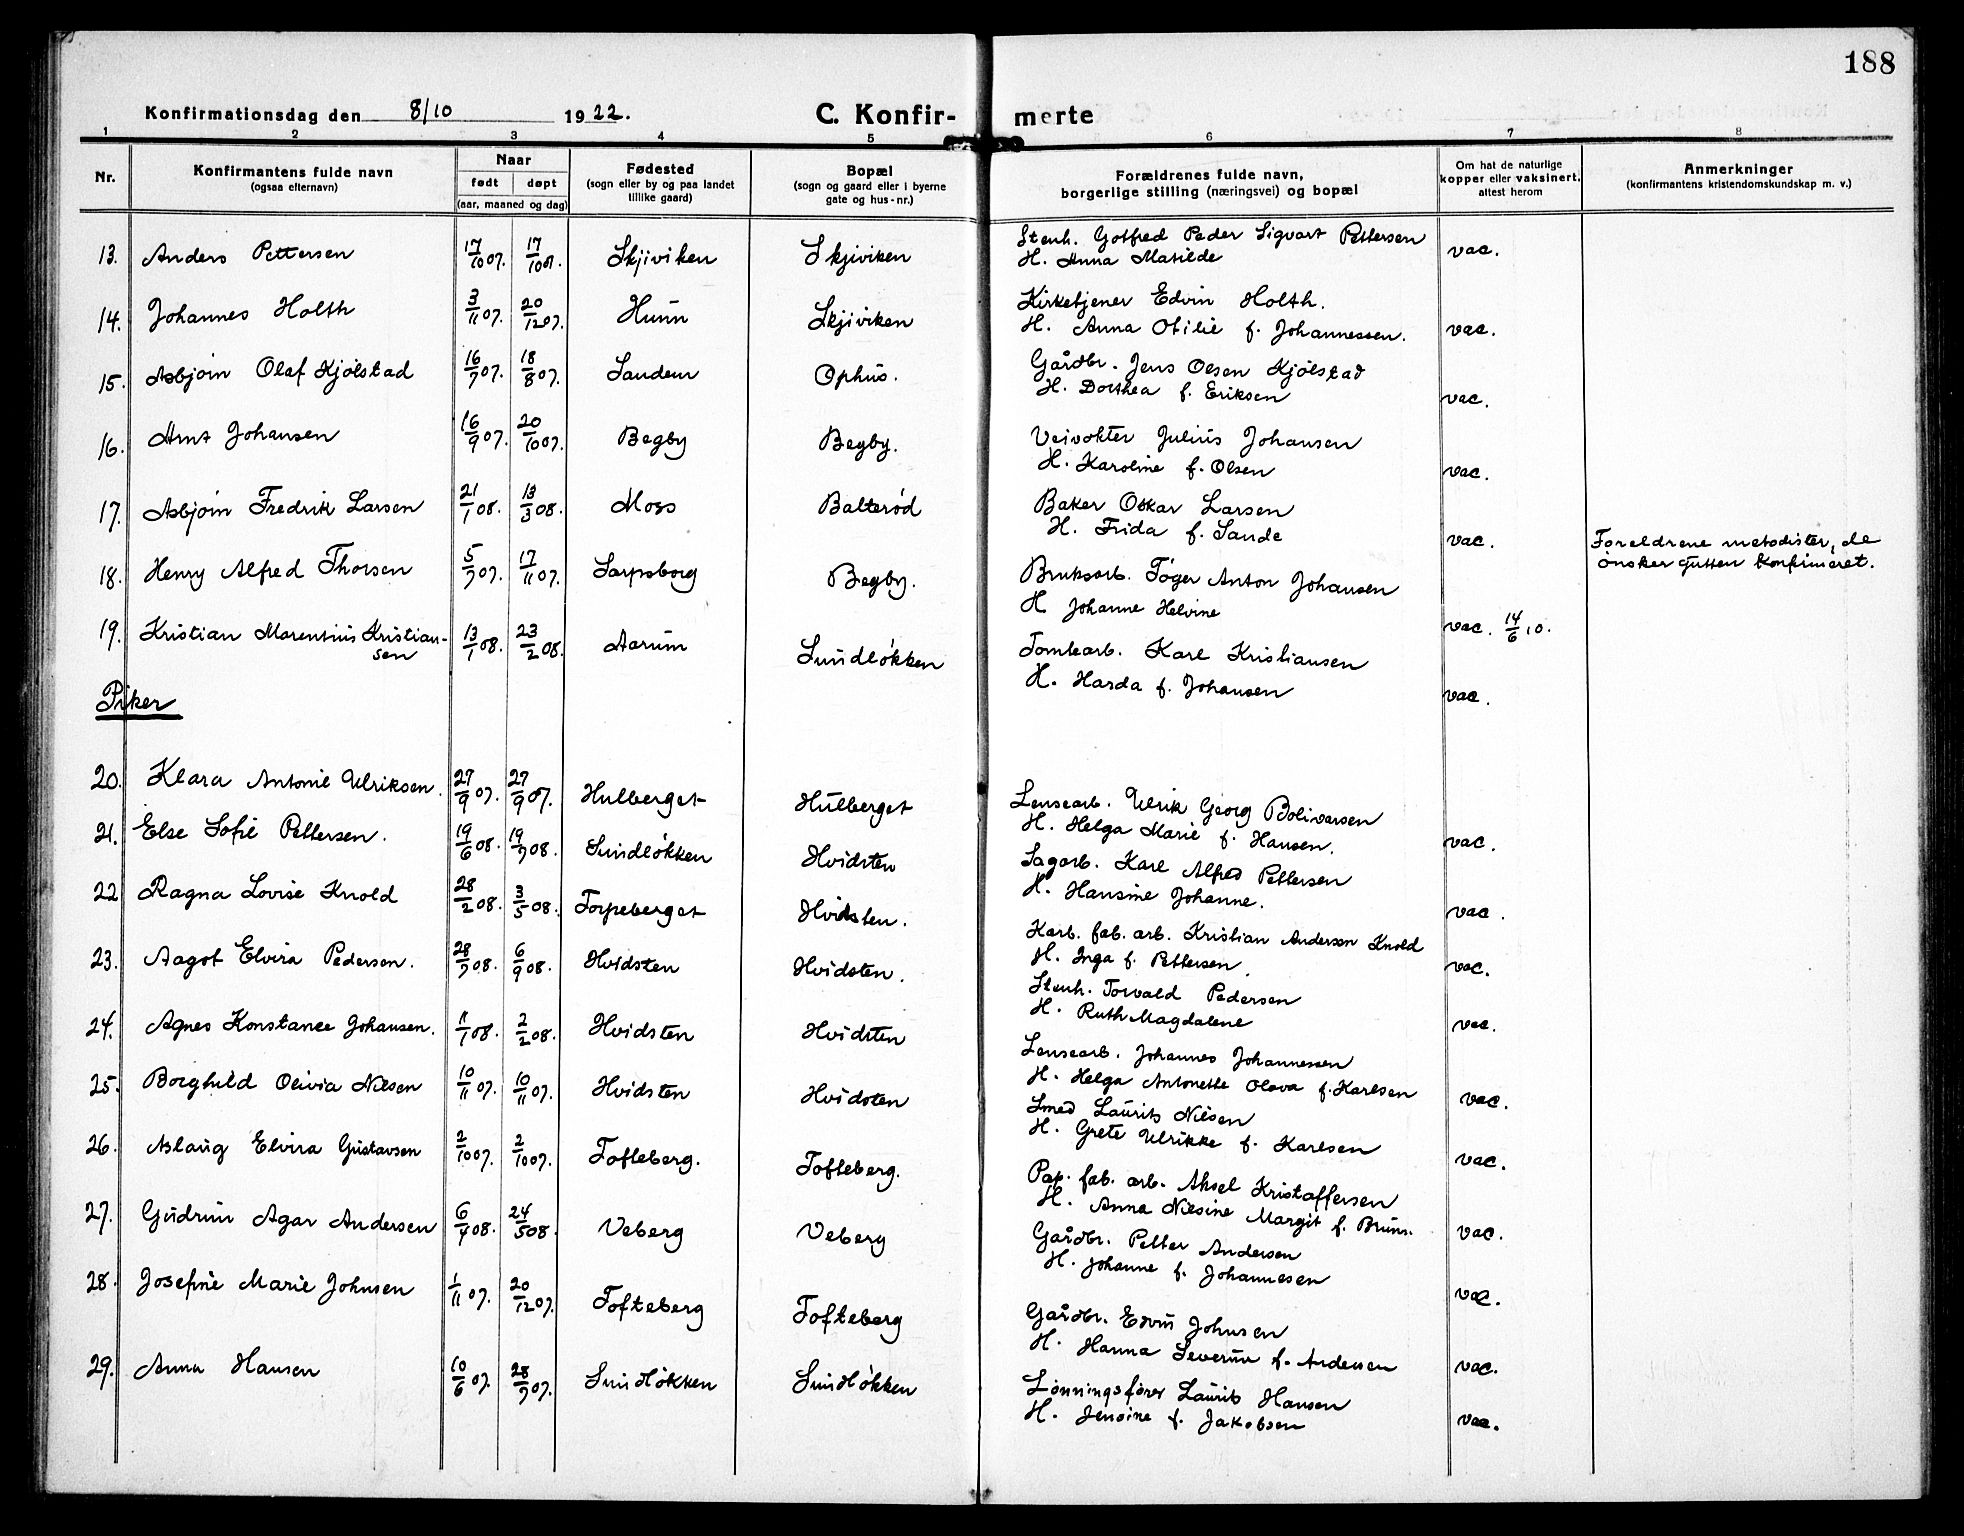 188
Konfirmationsdag den 8/10 1922. C. Konfir- merte
1 2 3 4 5 6 7 8
Nr. Konfirmantens fulde navn (ogsaa efternavn) Naar født døpt (aar, maaned og dag) Fødested (sogn eller by og paa landet tillike gaard) Bopæl (sogn og gaard eller i byerne gate og hus-nr.) Forældrenes fulde navn, borgerlige stilling (næringsvei) og bopæl Om hat de naturlige kopper eller vaksinert, attest herom Anmerkninger (konfirmantens kristendomskundskap m. v.)
13. Anders Pettersen 17/10 07. 17/10 07. Skjiviken Skjiviken Stenh. Gotfred Peder Sigvart Pettersen vac.
H. Anna Matilde
14. Johannes Holth 3/11 07. 20/12 07. Hunn Skjiviken Kirketjener Edvin Holth.
H. Anna Otilie f. Johannessen. vac.
15. Asbjørn Olaf Kjølstad 16/7 07. 18/8 07. Sandem Ophus. Gårdbr. Jens Olsen Kjølstad
H. Dorthea f. Eriksen vac.
16. Arnt Johansen 16/9 07. 20/10 07. Begby Begby. Veivokter Julius Johansen
H. Karoline f. Olsen vac.
17. Asbjørn Fredrik Larsen 21/1 08. 13/3 08. Moss Balterød Baker Oskar Larsen
H. Frida f. Sande vac.
18. Henry Alfred Thorsen 5/7 07. 17/11 07. Sarpsborg Begby. Bruksarb. Tøger Anton Johansen Foreldrene metodister, de
ønsker gutten konfirmeret.
H. Johanne Helvine vac. 14/6 10.
19. Kristian Marentius Kristian-
sen 13/1 08. 23/2 08. Aarum Sundløkken Tomtearb. Karl Kristiansen
H. Harda f. Johansen vac.
Piker
20. Klara Antonie Ulriksen. 27/9 07. 27/9 07. Hulberget Hulberget Lensearb. Ulrik Georg Bolivarsen
H. Helga Marie f. Hansen. vac.
21. Else Sofie Pettersen. 19/6 08. 19/7 08. Sundløkken Hvidsten Sagarb. Karl Alfred Pettersen
H. Hansine Johanne. vac.
22 Ragna Lovise Knold 28/2 08. 3/5 08. Torpeberget Hvidsten. Karb. fab. arb. Kristian Andersen Knold
H. Inga f. Pettersen. vac.
23. Aagot Elvira Pedersen. 28/7 08. 6/9 08. Hvidsten Hvidsten. Stenh. Torvald Pedersen
H. Ruth Magdalene vac.
24. Agnes Konstance Johansen. 11/1 08. 2/2 08. Hvidsten Hvidsten Lensearb. Johannes Johannessen
H. Helga Antonette Olava f. Karlsen vac.
25. Borghild Olivia Nilsen 10/11 07. 10/11 07. Hvidsten Hvidsten Smed Laurits Nilsen
H. Grete Ulrikke f. Karlsen vac.
26. Aslaug Elvira Gustavsen 2/10 07. 2/10 07. Tofteberg. Tofteberg. Pap. fab. arb. Aksel Kristaffersen
H. Anna Nilsine Margit f. Bruns. vac.
27. Gudrun Agar Andersen 6/4 08. 24/5 08. Veberg Veberg Gårdbr. Petter Andersen
H. Johanne f. Johannesen vac.
28. Josefine Marie Johnsen 1/11 07. 20/12 07. Tofteberg Tofteberg Gårdbr. Edvin Johnsen
H. Hanna Severine f. Andersen vac.
29. Anna Hansen 10/6 07. 28/7 07. Sundløkken Sundløkken Lønningsfører Laurits Hansen
H. Jensine f. Jakobsen vac.